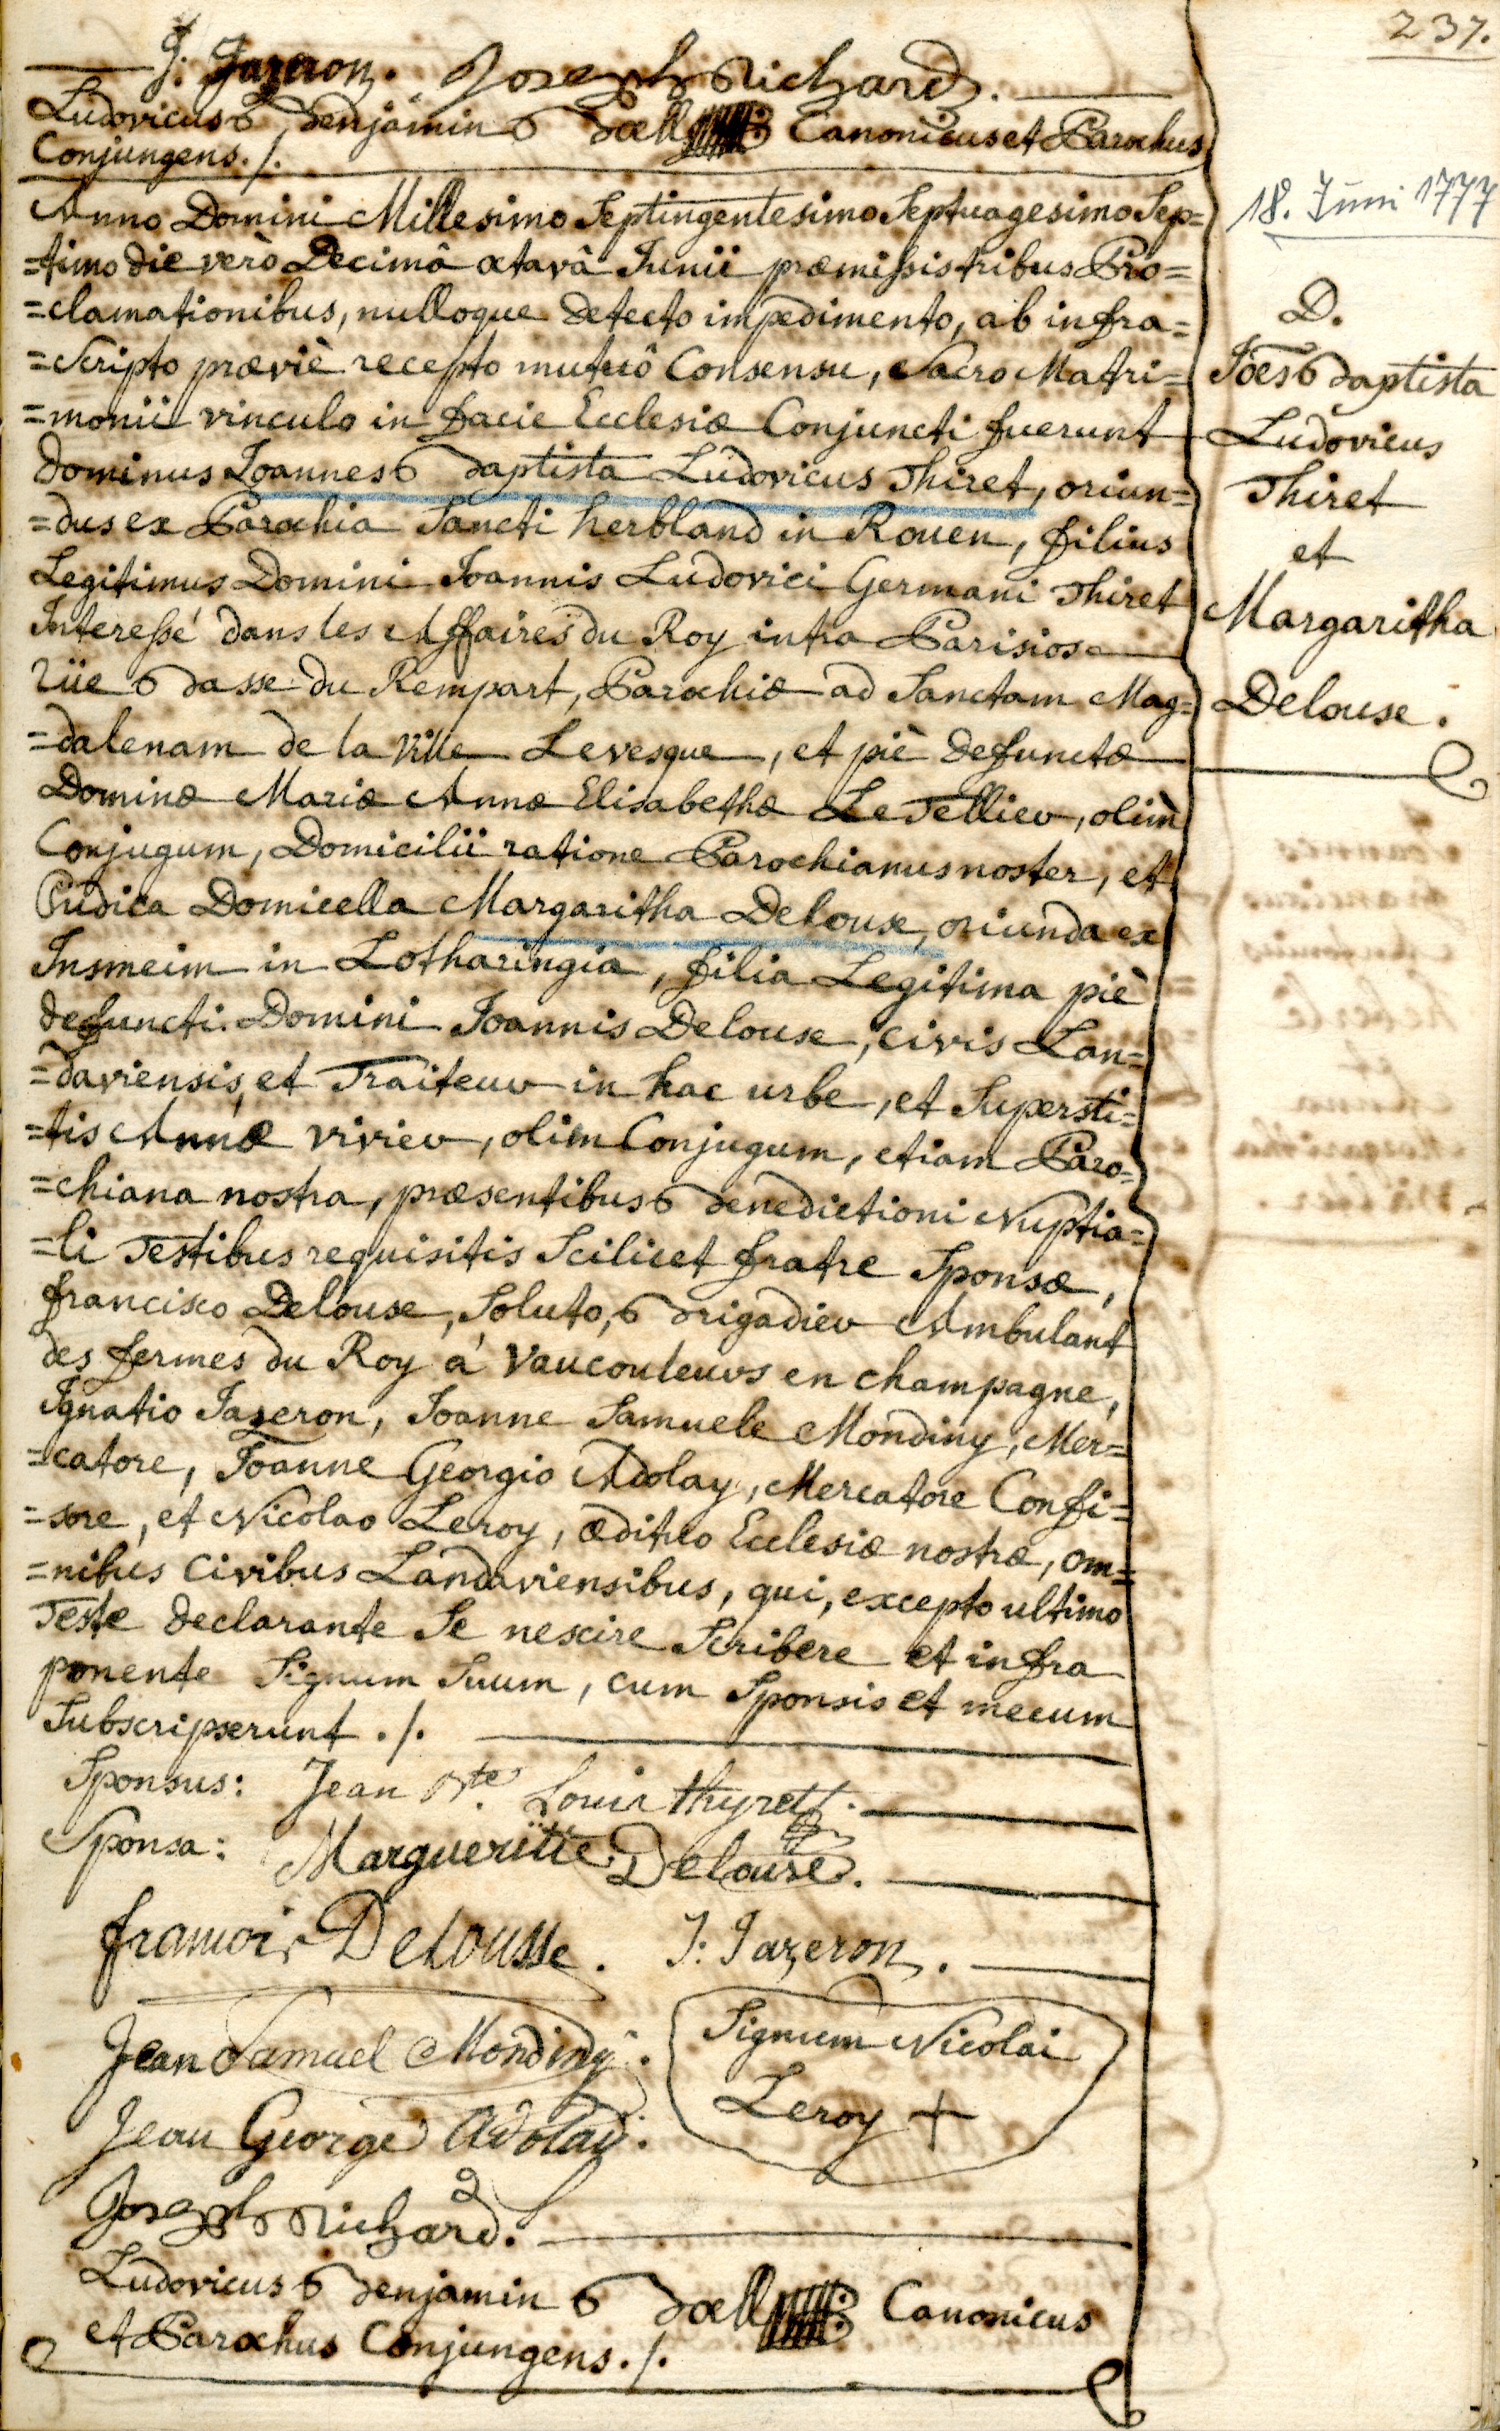 237.
J: Jazeron. Joseph Richard.
Ludovicus Benjamin Boell Canonicus et Parochus
Conjungens ./.
18. Juni 1777
Anno Domini Millesimo Septingentesimo Septuagesimo Sep=
=timo die verò Decimâ octavâ Junii præmissis tribus Pro=
=clamationibus, nulloque detecto impedimento, ab infra=
=Scripto præviè recepto mutuô Consensu, Sacro Matri=
=monii vinculo in facie Ecclesiæ Conjuncti fuerunt
Dominus Joannes Baptista Ludovicus Thiret, oriun=
=dus ex Parochia Sancti herbland in Rouen, filius
Legitimus Domini Joannis Ludovici Germani Thiret
Interessé dans les Affaires du Roy intra Parisios
rüe Basse du Rempart, Parochiæ ad Sanctam Mag=
=dalenam de la Ville Levesque, et piè defunctæ
Dominæ Mariæ Annæ Elisabethæ Le Tellier, olim
Conjugum, Domicilii ratione Parochianus noster, et
Pudica Domicella Margaritha Delouse, oriunda ex
Insmeim in Lotharingia, filia Legitima piè
defuncti Domini Joannis Delouse, civis Lan=
=daviensis, et Traiteur in hac urbe, et Supersti=
=tis Annæ Vivier, olim Conjugum, etiam Paro=
=chiana nostra, præsentibus Benedictioni Nuptia=
=li Testibus requisitis Scilicet fratre Sponsæ,
francisco Delouse, Soluto, Brigadier Ambulant
des fermes du Roy á Vaucouleurs en champagne,
Ignatio Jazeron, Joanne Samuele Mondiny, Mer=
=catore, Joanne Georgio Adolay, Mercatore Confi=
=sore, et Nicolao Leroy, ædituo Ecclesiæ nostræ, om=
=nibus Civibus Landaviensibus, qui, excepto ultimo
Teste declarante Se nescire Scribere et infra
ponente Signum Suum, cum Sponsis et mecum
Subscripserunt ./.
Sponsus: Jean Bte. Louis thyrett.
Sponsa: Margueritte Delouse.
francois Delousse. J: Jazeron.
Jean Samuel Mondiny.
Signum Nicolai
Leroy +
Jean George Adolay.
Joseph Richard.
Ludovicus Benjamin Boell Canonicus
et Parochus Conjungens ./.
D.
Joes Baptista
Ludovicus
Thiret
et
Margaritha
Delouse.